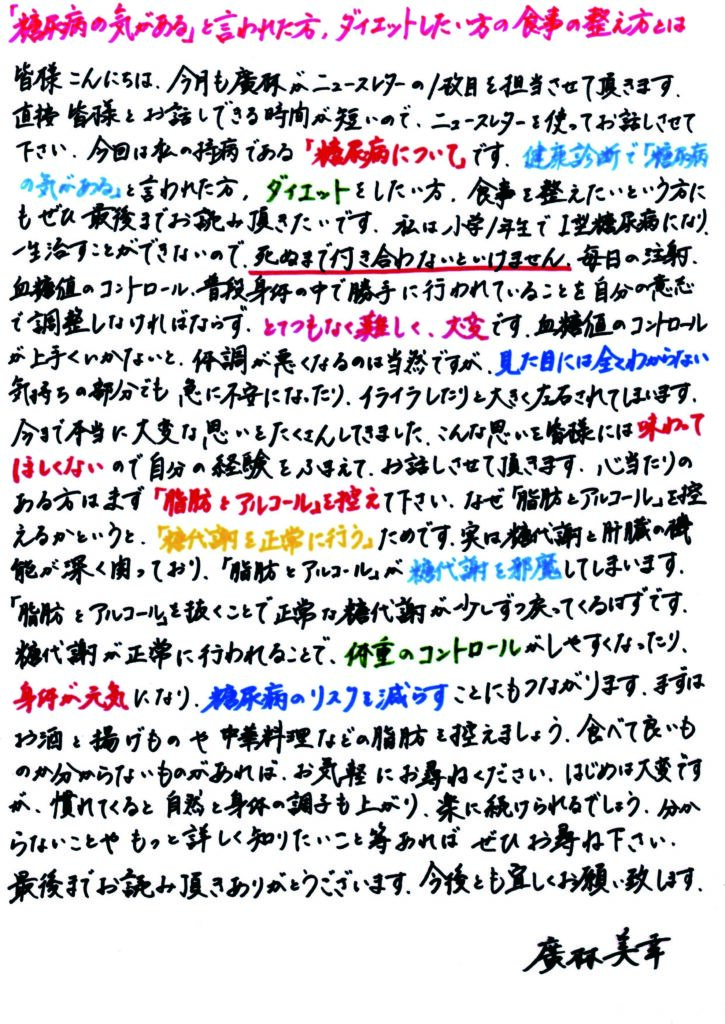 「糖尿病の気がある」と言われた方，ダイエットしたい方の食事の整え方とは
皆様こんにちは．今月も廣林がニュースレターの1枚目を担当させて頂きます．
直接皆様とお話しできる時間が短いので．ニュースレターを使ってお話しさせて
下さい．今回は私の持病である「糖尿病について」です．健康診断で「糖尿病
の気がある」と言われた方，ダイエットをしたい方，食事を整えたいという方に
もぜひ最後までお読み頂きたいです．私は小学1年生でI型糖尿病になり，
一生治すことができないので．死ぬまで付き合わないといけません．毎日の注射．
血糖値のコントロール．普段身体の中で勝手に行われていることを自分の意志
で調整しなければならず．とてつもなく難しく、大変です．血糖値のコントロール
が上手くいかないと．体調が悪くなるのは当然ですが、見た目には全くわからない
気持ちの部分でも急に不安になったり．イライラしたりと大きく左右されてしまいます．
今まで本当に大変な思いをたくさんしてきました．こんな思いを皆様には味わって
ほしくないので自分の経験をふまえて．お話しさせて頂きます．心当たりの
ある方はまず「脂肪とアルコール」を控えて下さい．なぜ「脂肪とアルコール」を控
えるかというと．「糖代謝を正常に行う」ためです．実は糖代謝と肝臓の機
能が深く関っており．「脂肪とアルコール」が糖代謝を邪魔してしまいます．
「脂肪とアルコール」を抜くことで正常な糖代謝が少しずつ戻ってくるはずです．
糖代謝が正常に行われることで、体重のコントロールがしやすくなったり．
身体が元気になり．糖尿病のリスクを減らすことにもつながります．まずは
お酒と揚げものや中華料理などの脂肪を控えましょう．食べて良いも
のか分からないものがあれば．お気軽にお尋ねください．はじめは大変です
が．慣れてくると自然と身体の調子も上がり．楽に続けられるでしょう．分か
らないことやもっと詳しく知りたいこと等あればぜひお尋ね下さい．
最後までお読み頂きありがとうございます．今後とも宜しくお願い致します．
廣林美幸